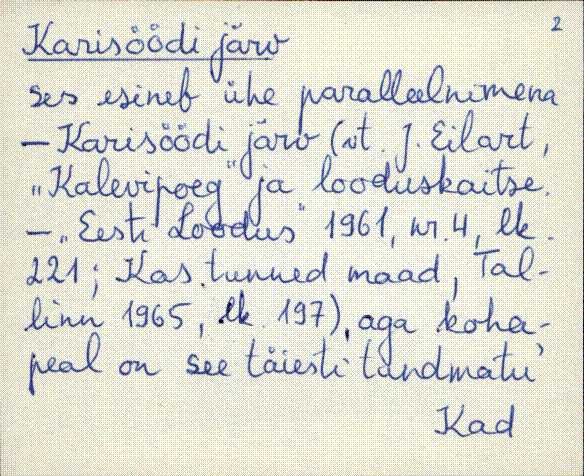 2
Karisöödi järv
ses esineb ühe paralleelnimena
— Karisöödi järv (vt. J. Eilart,
„Kalevipoeg" ja looduskaitse.
— „Eesti Loodus" 1961, nr. 4, lk.
221; Kas tunned maad, Tal-
linn 1965, lk. 197), aga koha-
peal on see täiesti tundmatu
Kad